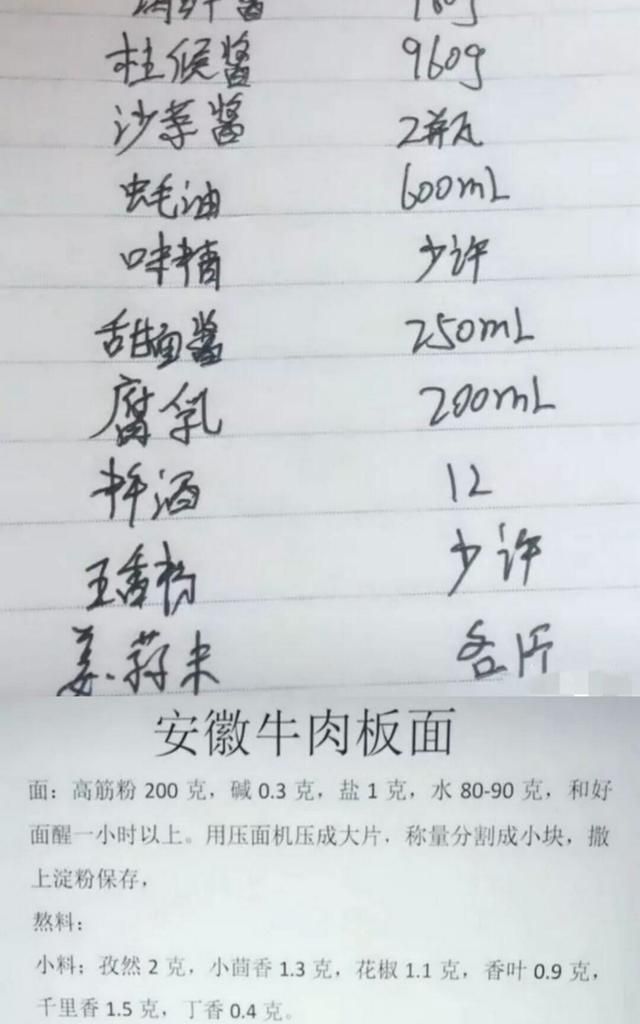 柱侯酱 960g
沙茶酱 2瓶
蚝油 600mL
味精 少许
甜面酱 250mL
腐乳 200mL
料酒 1L
五香粉 少许
姜.蒜末 各1斤
安徽牛肉板面
面：高筋粉 200 克，碱 0.3 克，盐 1 克，水 80-90 克，和好
面醒一小时以上。用压面机压成大片，称量分割成小块，撒
上淀粉保存，
熬料：
小料：孜然 2 克，小茴香 1.3 克，花椒 1.1 克，香叶 0.9 克，
千里香 1.5 克，丁香 0.4 克。